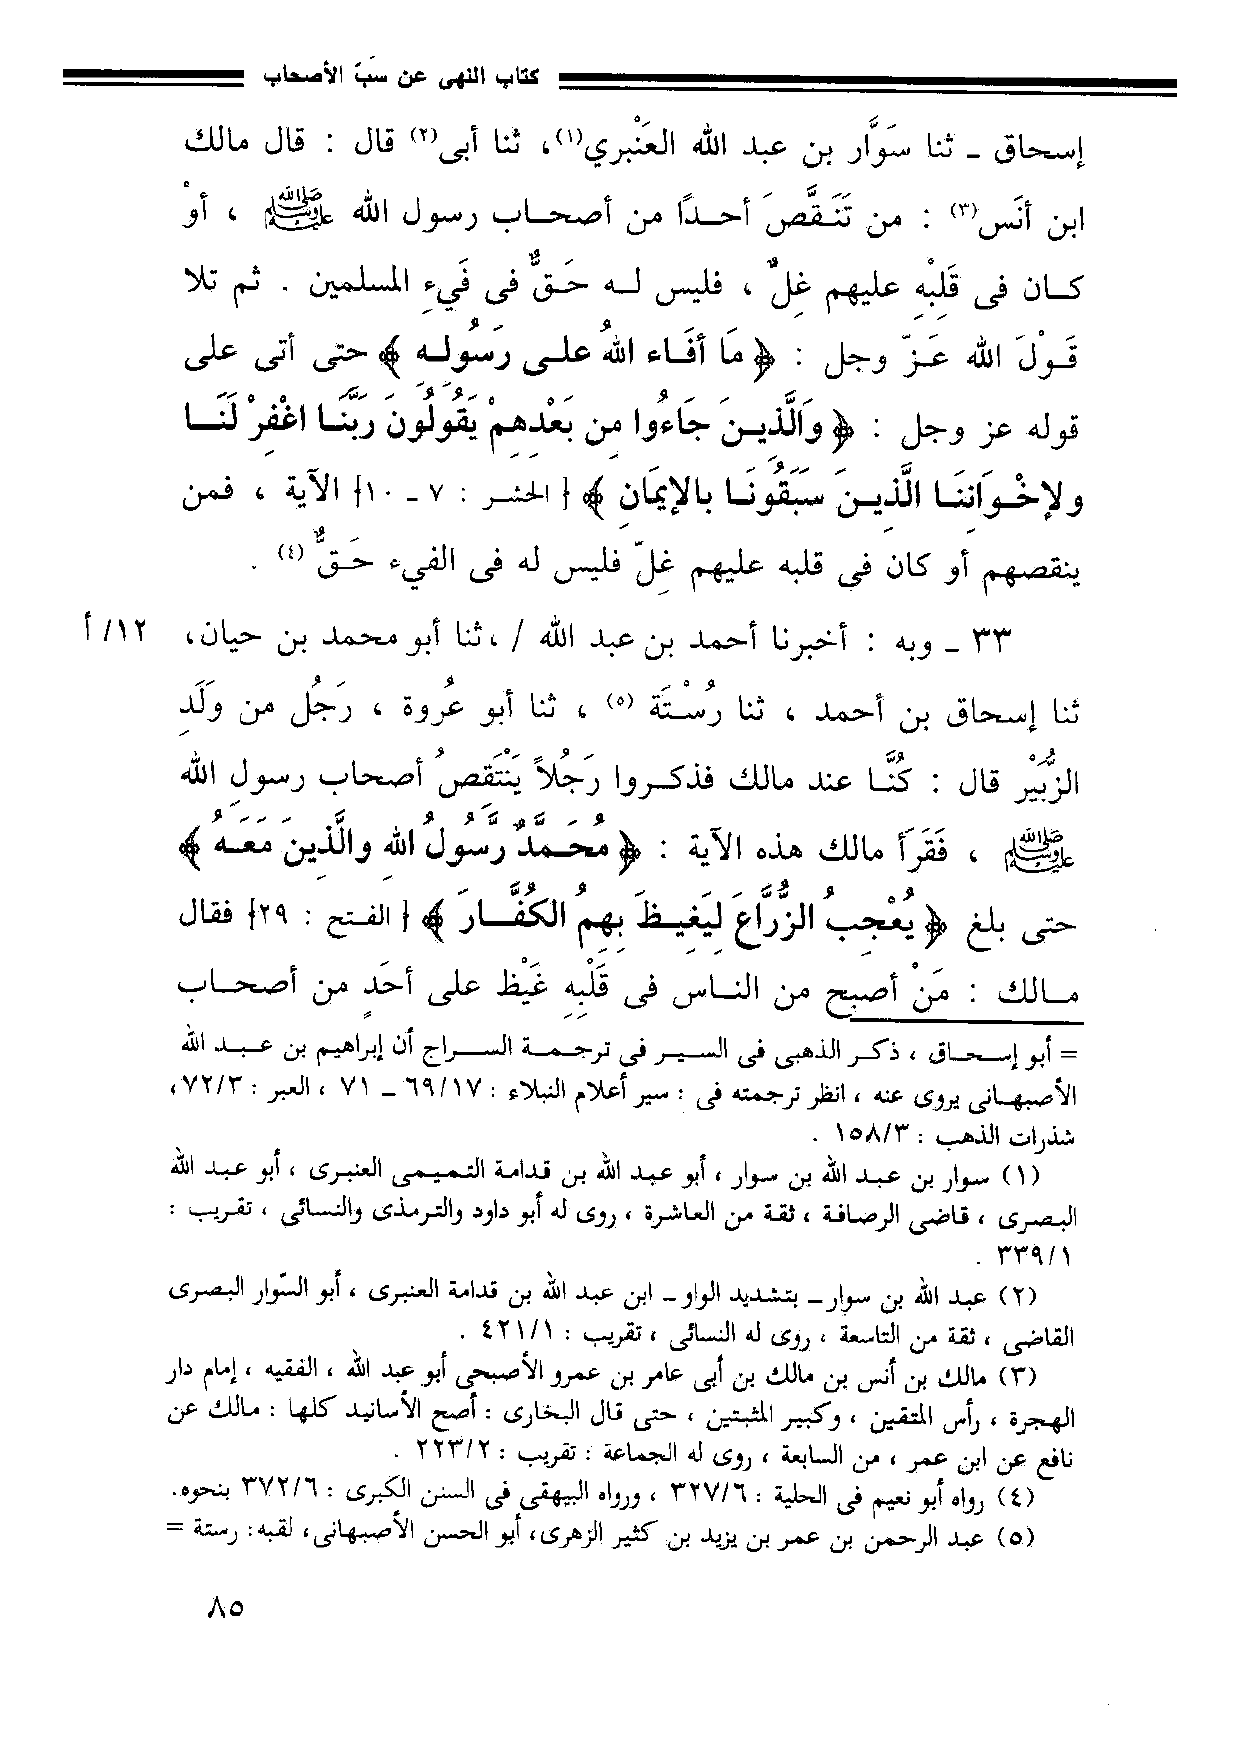 كتاب النهى عن سَبّ الأصحاب
إسحاق - ثنا سَوَّار بن عبد الله العَنْبري(١)، ثنا أبى(٢) قال : قال مالك
ابن أنَس(٣) : من تَنَقَّصَ أحدًا من أصحاب رسول الله ﷺ ، أوْ
كان فى قَلْبِه عليهم غِلٌ ، فليس له حَقٌّ فى فَيءِ المسلمين . ثم تلا
قَوْلَ الله عَزّ وجل : ﴿ مَا أفَاء اللهُ على رَسُوله ﴾ حتى أتى على
قوله عز وجل : ﴿ وَالَّذين جَاءُوا من بَعْدِهِمْ يَقُولُون رَبَّنَا اغْفِرْ لَنَا
ولإخْوَانِنَا الَّذِين سَبَقُونَا بالإيمَانِ ﴾ {الحشر : ٧ - ١٠} الآية ، فمن
ينقصهم أو كان فى قلبه عليهم غِلّ فليس له فى الفيء حَقٌّ (٤) .
٣٣ - وبه : أخبرنا أحمد بن عبد الله / ،ثنا أبو محمد بن حيان، ١٢/ أ
ثنا إسحاق بن أحمد ، ثنا رُسْتَة (٥) ، ثنا أبو عُروة ، رَجُل من وَلَدِ
الزُّبَيْر قال : كُنَّا عند مالك فذكروا رَجُلاً يَنْتَقِصُ أصحاب رسول الله
ﷺ ، فَقَرَأ مالك هذه الآية : ﴿ محَمَّدٌ رسُولُ الله والَّذِين مَعَهُ ﴾
حتى بلغ ﴿ يُعْجِبُ الزُّرَّاعَ لِيَغِيظَ بِهِمُ الكُفَّارَ ﴾ {الفتح : ٢٩} فقال
مالك : مَنْ أصبح من الناس فى قَلْبِهِ غَيْظ على أحَدٍ من أصحاب
= أبو إسحاق ، ذكر الذهبى فى السير فى ترجمة السراج أن إبراهيم بن عبد الله
الأصبهانى يروى عنه ، انظر ترجمته فى : سير أعلام النبلاء : ٦٩/١٧ - ٧١ ، العبر : ٧٢/٣،
شذرات الذهب : ١٥٨/٣ .
(١) سوار بن عبد الله بن سوار ، أبو عبد الله بن قدامة التميمى العنبرى ، أبو عبد الله
البصرى ، قاضى الرصافة ، ثقة من العاشرة ، روى له أبو داود والترمذى والنسائى ، تقريب :
٣٣٩/١ .
(٢) عبد الله بن سوار- بتشديد الواو - ابن عبد الله بن قدامة العنبرى ، أبو السّوار البصرى
القاضى ، ثقة من التاسعة ، روى له النسائى ، تقريب : ٤٢١/١ .
(٣) مالك بن أنس بن مالك بن أبى عامر بن عمرو الأصبحى أبو عبد الله ، الفقيه ، إمام دار
الهجرة ، رأس المتقين ، وكبير المثبتين ، حتى قال البخارى : أصح الأسانيد كلها : مالك عن
نافع عن ابن عمر ، من السابعة ، روى له الجماعة : تقريب : ٢٢٣/٢ .
(٤) رواه أبو نعيم فى الحلية : ٣٢٧/٦ ، ورواه البيهقى فى السنن الكبرى : ٣٧٢/٦ بنحوه.
(٥) عبد الرحمن بن عمر بن يزيد بن كثير الزهرى، أبو الحسن الأصبهانى، لقبه: رستة =
٨٥